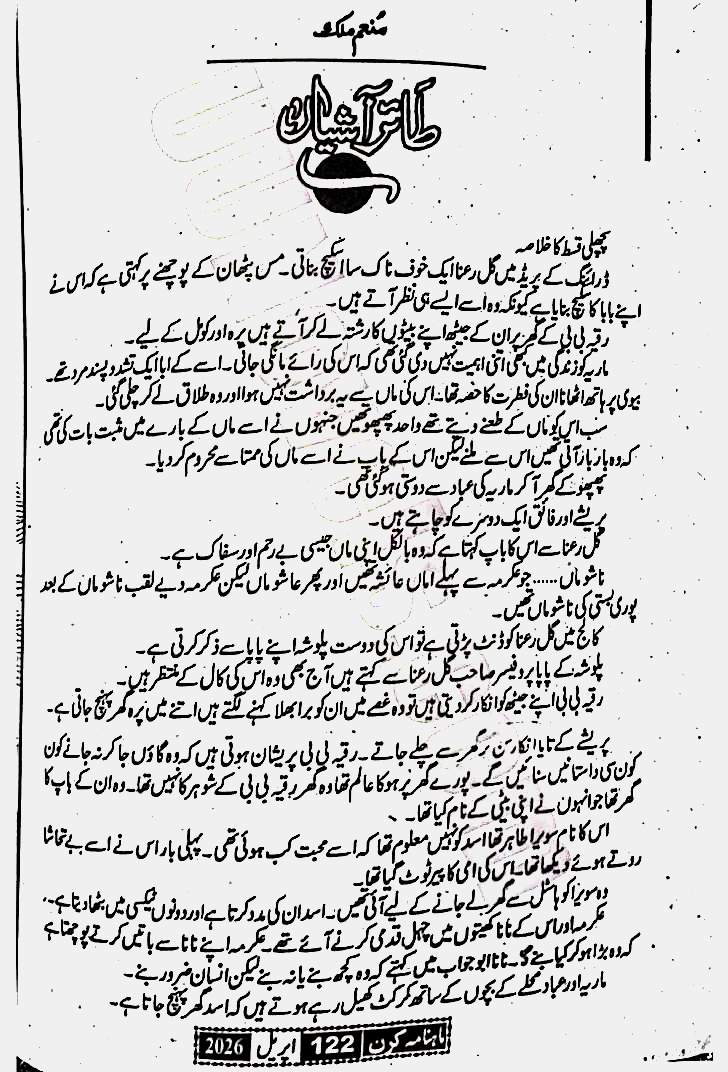 منعم ملک
طائر آشیاں
پچھلی قسط کا خلاصہ
ڈرائنگ کے پریڈ میں گل رعنا ایک خوف ناک سا اسکیچ بناتی۔ مس پٹھان کے پوچھنے پر کہتی ہے کہ اس نے
اپنے بابا کا اسکیچ بنایا ہے کیونکہ وہ اسے ایسے ہی نظر آتے ہیں۔
رقیہ بی بی کے گھر پر ان کے جیٹھ اپنے بیٹوں کا رشتہ لے کر آتے ہیں پرہ اور کومل کے لیے۔
ماریہ کو زندگی میں کبھی اتنی اہمیت نہیں دی گئی تھی کہ اس کی رائے مانگی جاتی۔ اسے کے ابا ایک تشدد پسند مرد تھے۔
بیوی پر ہاتھ اٹھانا ان کی فطرت کا حصہ تھا۔ اس کی ماں سے یہ برداشت نہیں ہوا اور وہ طلاق لے کر چلی گئی۔
سب اس کو ماں کے طعنے دیتے تھے واحد پھپھو تھیں جنہوں نے اسے ماں کے بارے میں مثبت بات کی تھی
کہ وہ بار بار آتی تھیں اس سے ملنے لیکن اس کے باپ نے اسے ماں کی ممتا سے محروم کر دیا۔
پھپھو کے گھر آ کر ماریہ کی عباد سے دوستی ہو گئی تھی۔
پریشے اور فائق ایک دوسرے کو چاہتے ہیں۔
گل رعنا سے اس کا باپ کہتا ہے کہ وہ بالکل اپنی ماں جیسی بے رحم اور سفاک ہے۔
ناشوماں ...... جو عکرمہ سے پہلے اماں عائشہ تھیں اور پھر عاشوماں لیکن عکرمہ دیے لقب ناشوماں کے بعد
پوری بستی کی ناشوماں تھیں۔
کالج میں گل رعنا کو ڈانٹ پڑتی ہے تو اس کی دوست پلوشہ اپنے پاپا سے ذکر کرتی ہے۔
پلوشہ کے پاپا پروفیسر صاحب گل رعنا سے کہتے ہیں آج بھی وہ اس کی کال کے منتظر ہیں۔
رقیہ بی بی اپنے جیٹھ کو انکار کر دیتی ہیں تو وہ غصے میں ان کو برا بھلا کہنے لگتے ہیں اتنے میں پرہ گھر پہنچ جاتی ہے۔
پریشے کے تایا انکار سن کر گھر سے چلے جاتے۔ رقیہ بی بی پریشان ہوتی ہیں کہ وہ گاؤں جا کر نہ جانے کون
کون سی داستانیں سنائیں گے۔ پورے گھر پر ہو کا عالم تھا وہ گھر رقیہ بی بی کے شوہر کا نہیں تھا۔ وہ ان کے باپ کا
گھر تھا جو انہوں نے اپنی بیٹی کے نام کیا تھا۔
اس کا نام سویرا طاہر تھا اسد کو نہیں معلوم تھا کہ اسے محبت کب ہوئی تھی۔ پہلی بار اس نے اسے بے تحاشا
روتے ہوئے دیکھا تھا۔ اس کی امی کا پیر ٹوٹ گیا تھا۔
وہ سویرا کو ہاسٹل سے گھر لے جانے کے لیے آئی تھیں۔ اسد ان کی مدد کرتا ہے اور دونوں ٹیکسی میں بٹھا دیتا ہے۔
عکرمہ اور اس کے نانا کھیتوں میں چہل قدمی کرنے آئے تھے۔ عکرمہ اپنے نانا سے باتیں کرتے پوچھتا ہے
کہ وہ بڑا ہو کر کیا بنے گا۔ نانا ابو جواب میں کہتے کہ وہ کچھ بنے یا نہ بنے لیکن انسان ضرور بنے۔
ماریہ اور عباد محلے کے بچوں کے ساتھ کرکٹ کھیل رہے ہوتے ہیں کہ اسد گھر پہنچ جاتا ہے۔
ماہنامہ کرن 122 اپریل 2026